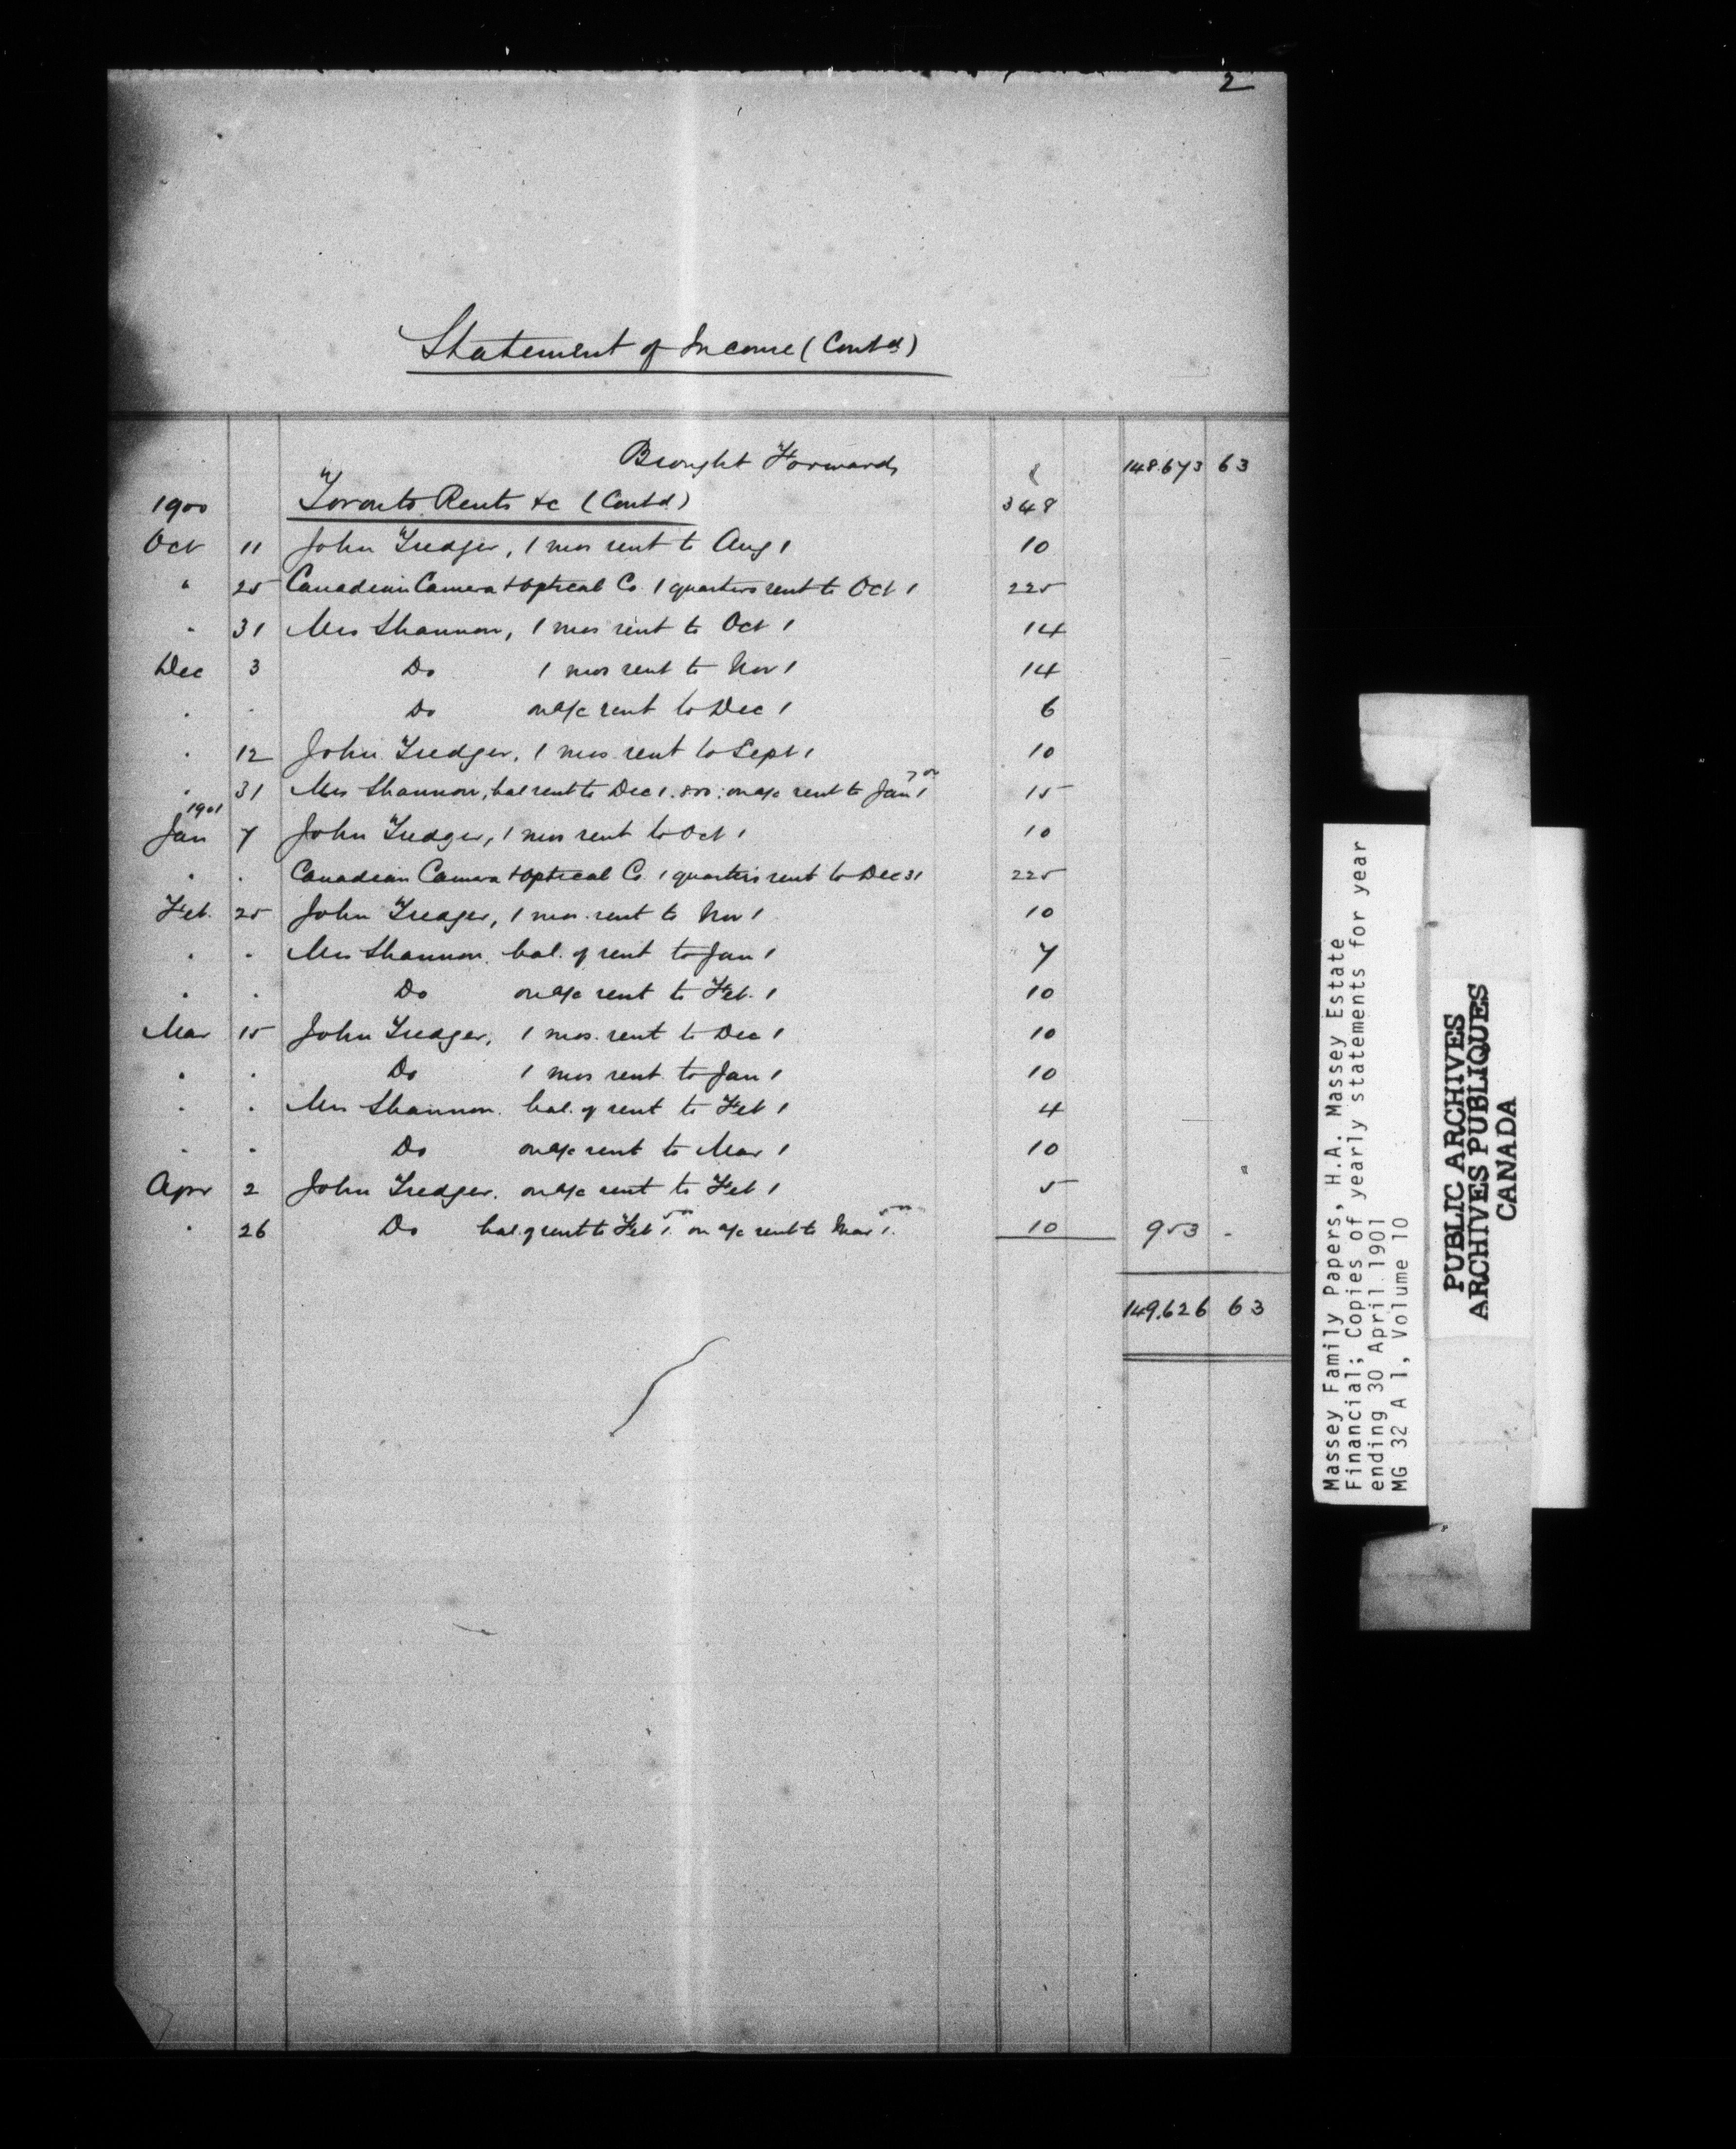 2
Statement of Income (Contd)
Brought Forward 148.673 63
1900 Toronto Rents &c (Contd) 348
Oct 11 John Tredger, 1 mos rent to Aug 1 10
" 25 Canadian Camera & Optical Co. 1 quarters rent to Oct 1 225
" 31 Mrs Shannon, 1 mos rent to Oct 1 14
Dec 3 Do 1 mos rent to Nov 1 14
" " Do on a/c rent to Dec 1 6
" 12 John Tredger, 1 mos rent to Sept 1 10
" 31 Mrs Shannon, bal rent to Dec 1. 8.00. on a/c rent to Jan 1 7.00 15
1901
Jan 7 John Tredger, 1 mos rent to Oct 1 10
" " Canadian Camera & Optical Co. 1 quarters rent to Dec 31 225
Feb. 25 John Tredger, 1 mos. rent to Nov 1 10
" " Mrs Shannon. bal. of rent to Jan 1 7
" " Do on a/c rent to Feb. 1 10
Mar 15 John Tredger, 1 mos. rent to Dec 1 10
" " Do 1 mos rent to Jan 1 10
" " Mrs Shannon. bal. of rent to Feb 1 4
" " Do on a/c rent to Mar 1 10
Apr 2 John Tredger. on a/c rent to Feb 1 5
" 26 Do bal. of rent to Feb 1. 5.00 on a/c rent to Mar 1. 5.00 10 953 -
149.626 63
Massey Family Papers, H.A. Massey Estate
Financial; Copies of yearly statements for year
ending 30 April 1901
MG 32 A 1, Volume 10
PUBLIC ARCHIVES
ARCHIVES PUBLIQUES
CANADA